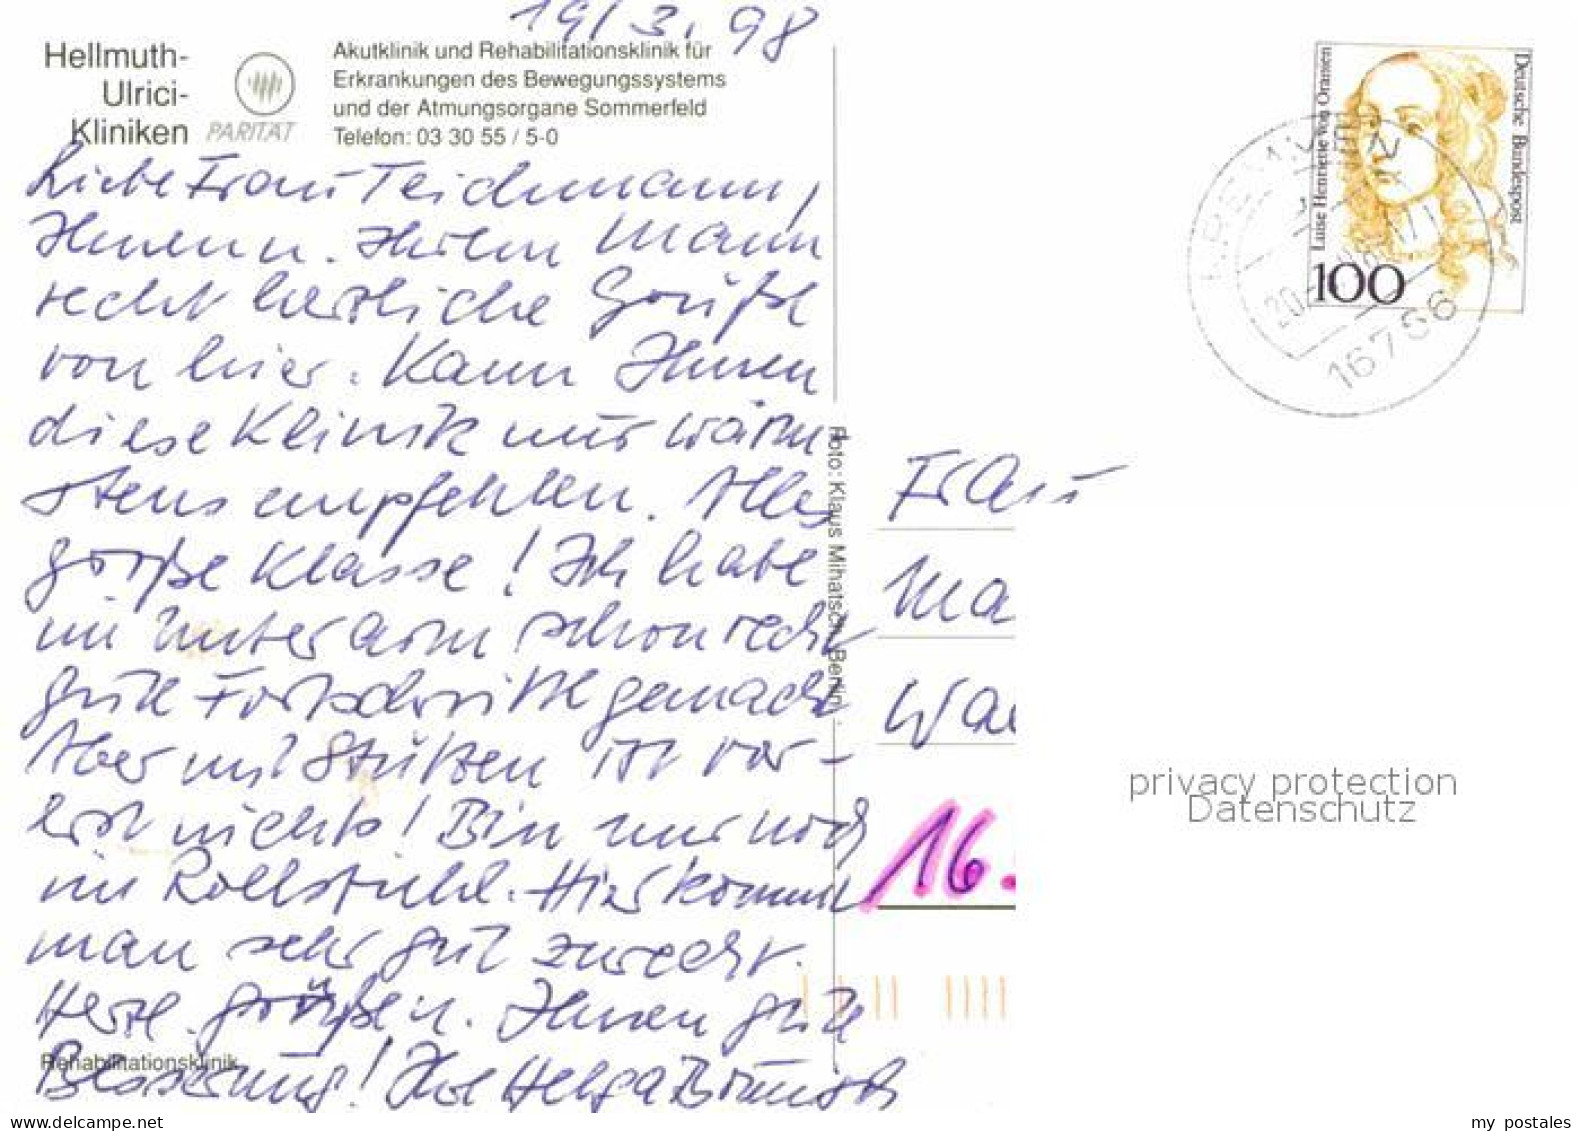 19/3. 98
Hellmuth-
Ulrici-
Kliniken
PARITÄT
Akutklinik und Rehabilitationsklinik für
Erkrankungen des Bewegungssystems
und der Atmungsorgane Sommerfeld
Telefon: 03 30 55 / 5-0
Liebe Frau Teichmann,
Ihnen u. Ihrem Mann
recht herzliche Grüße
von hier. Kann Ihnen
diese Klinik nur wärm-
stens empfehlen. Alles
große Klasse! Ich habe
im Unterarm schon recht
gute Fortschritte gemacht
Aber mit Stützen ist vor-
erst nichts! Bin nur noch
im Rollstuhl. Hier kommt
man sehr gut zurecht.
Herzl. Grüßen. Ihnen gute
Besserung! Ihre Helga
Rehabilitationsklinik
Foto: Klaus Mihatsch, Berlin
Deutsche Bundespost
Luise Henriette von Oranien
100
KREMMEN
20.
16766
Frau
Ma
Wa
16.
privacy protection
Datenschutz
www.delcampe.net
my_postales